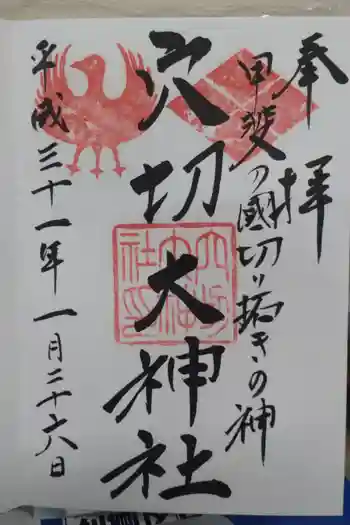 奉拝
甲斐の國切り拓きの神
穴切大神社
平成三十一年一月二十六日